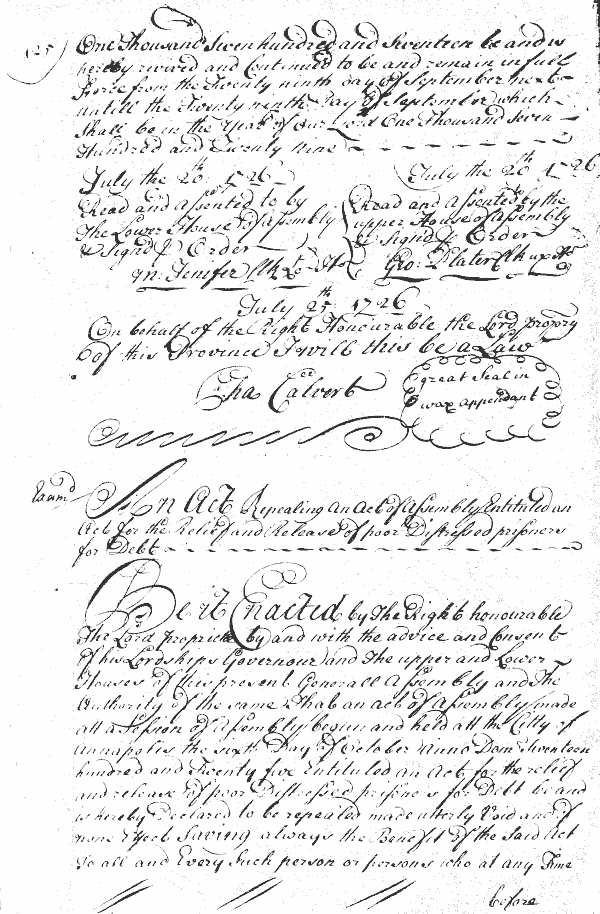 125
One Thousand Seven hundred and Seventeen be and is
hereby revived and Continued to be and remain in full
Force from the Twenty ninth day of September next
untill the Twenty ninth Day of September which
Shall be in the Year of our Lord One Thousand Seven
Hundred and Twenty Nine
July the 20th 1726
July the 20th 1726
Read and assented to by
The Lower House of Assembly
& Signd p Order
M: Jenifer Clk Lo Ho
Read and assented by the
upper House of assembly
& Signd p Order
Geo: Plater Clk up Ho
July 25th 1726
On behalf of the Right Honourable the Lord propry
of this Province I will this be a Law
Chas Calvert
great Seal in
wax appendant
Examd
An Act Repealing an act of Assembly Entituled an
Act for the Relief and Release of poor Distressed prisoners
for Debt
Be it Enacted by the Right honourable
The Lord proprietr by and with the advice and Consent
of his Lordships Governour and the upper and Lower
Houses of this present Generall Assembly and the
Authority of the same That an act of Assembly made
att a Session of Assembly begun and held att the Citty of
Annapolis the sixth Day of October Anno Dom Seventeen
hundred and Twenty five Entituled an Act for the relief
and release of poor Distressed prisoners for Debt be and
is hereby Declared to be repealed made utterly Void and of
none Effect Saving always the Benefit of the Said Act
To all and Every Such person or persons who at any Time
before